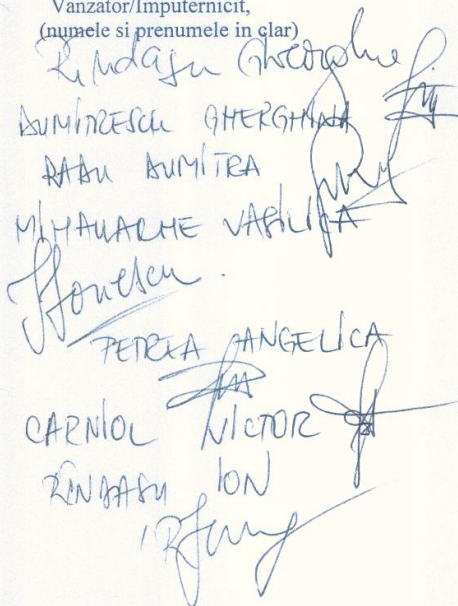 Vanzator/Imputernicit,
(numele si prenumele in clar)
Rindașu Gheorghe
DUMITRESCU GHERGHINA
RADU DUMITRA
MIHALACHE VASILICA
Ionescu
PETREA ANGELICA
CARNIOL VICTOR
RÎNDAȘU ION